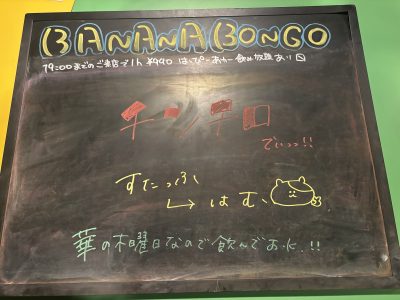 BANANA BONGO
19:00までのご来店で1h ¥990 はっぴーあわー飲み放題あり
チンチロ
でいっっ!!
すたっふ
↳ はむ、
華の木曜日なので飲んであ、に、!!